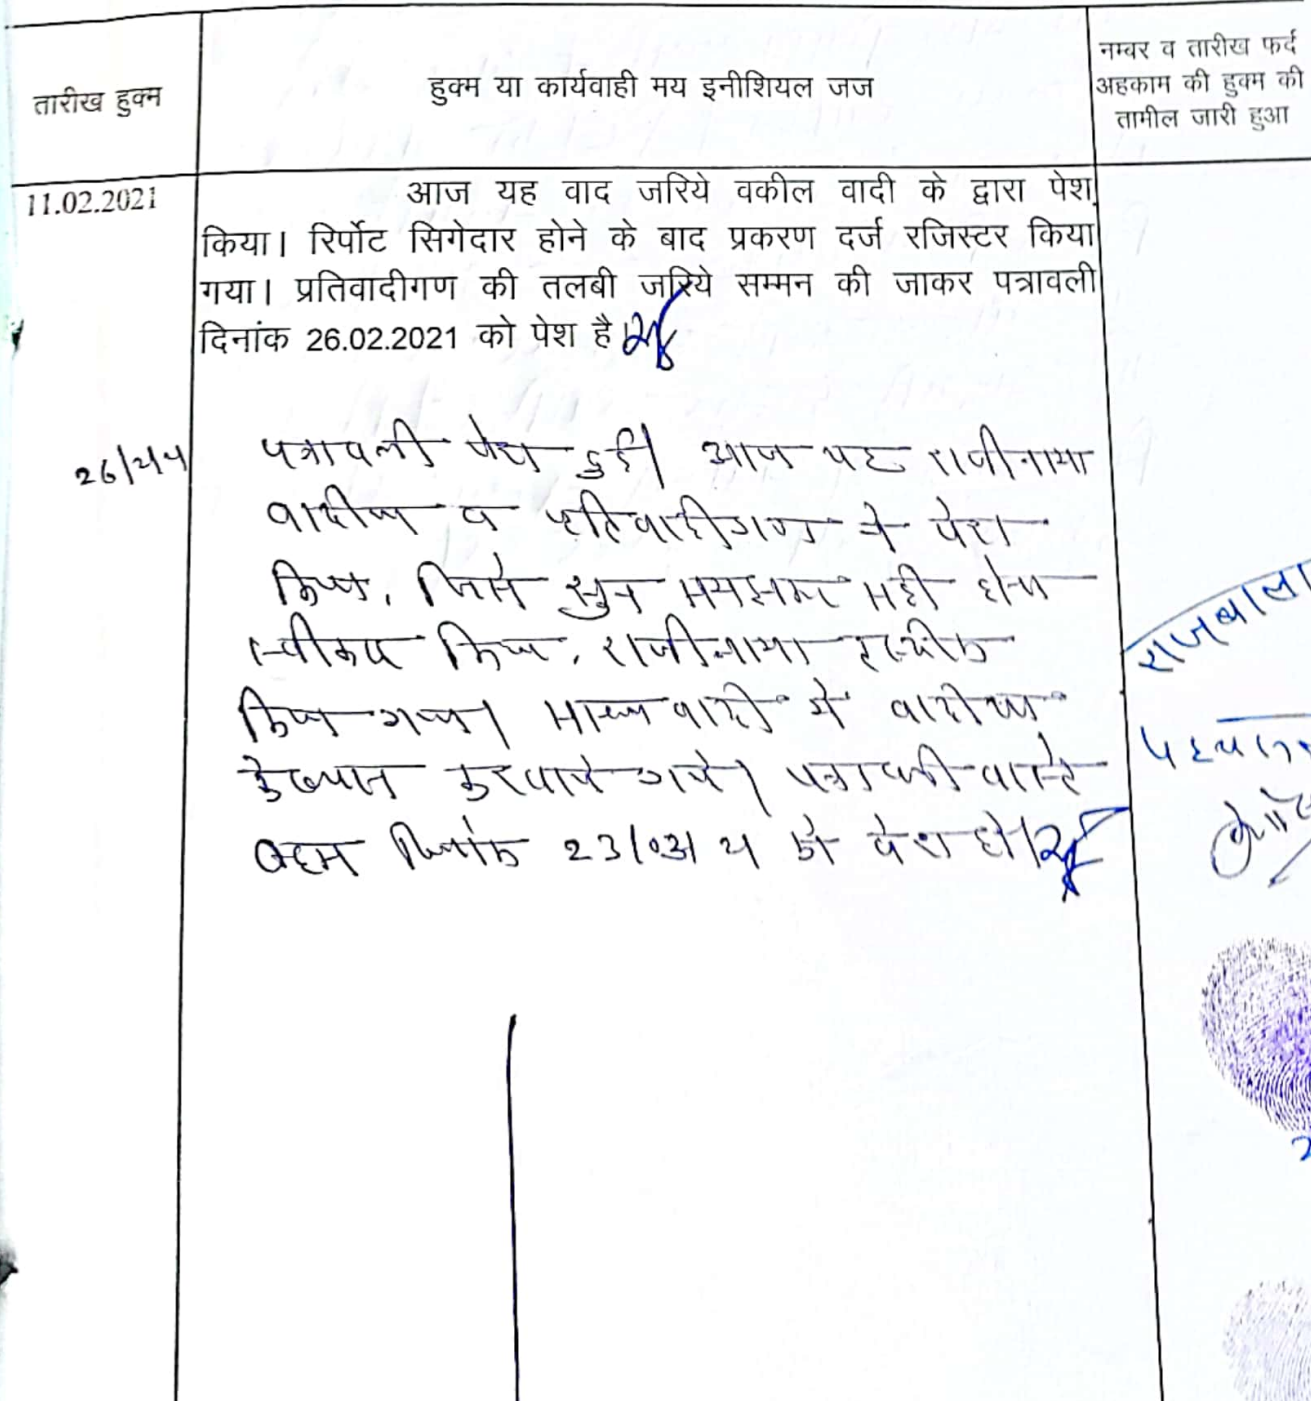 तारीख हुक्म
हुक्म या कार्यवाही मय इनीशियल जज
नम्बर व तारीख फर्द
अहकाम की हुक्म की
तामील जारी हुआ
11.02.2021
आज यह वाद जरिये वकील वादी के द्वारा पेश
किया। रिर्पोट सिगेदार होने के बाद प्रकरण दर्ज रजिस्टर किया
गया। प्रतिवादीगण की तलबी जरिये सम्मन की जाकर पत्रावली
दिनांक 26.02.2021 को पेश है।
26/2/21
पत्रावली पेश हुई। आज यह राजीनामा
वादीया व प्रतिवादीगण ने पेश
किया, जिसे सुन समझकर सही होना
स्वीकार किया, राजीनामा तस्दीक
किया गया। साक्ष्य वादी में वादीया
के बयान करवाये गये। पत्रावली वास्ते
बहस दिनांक 23/03/21 को पेश हो।
राजबाला